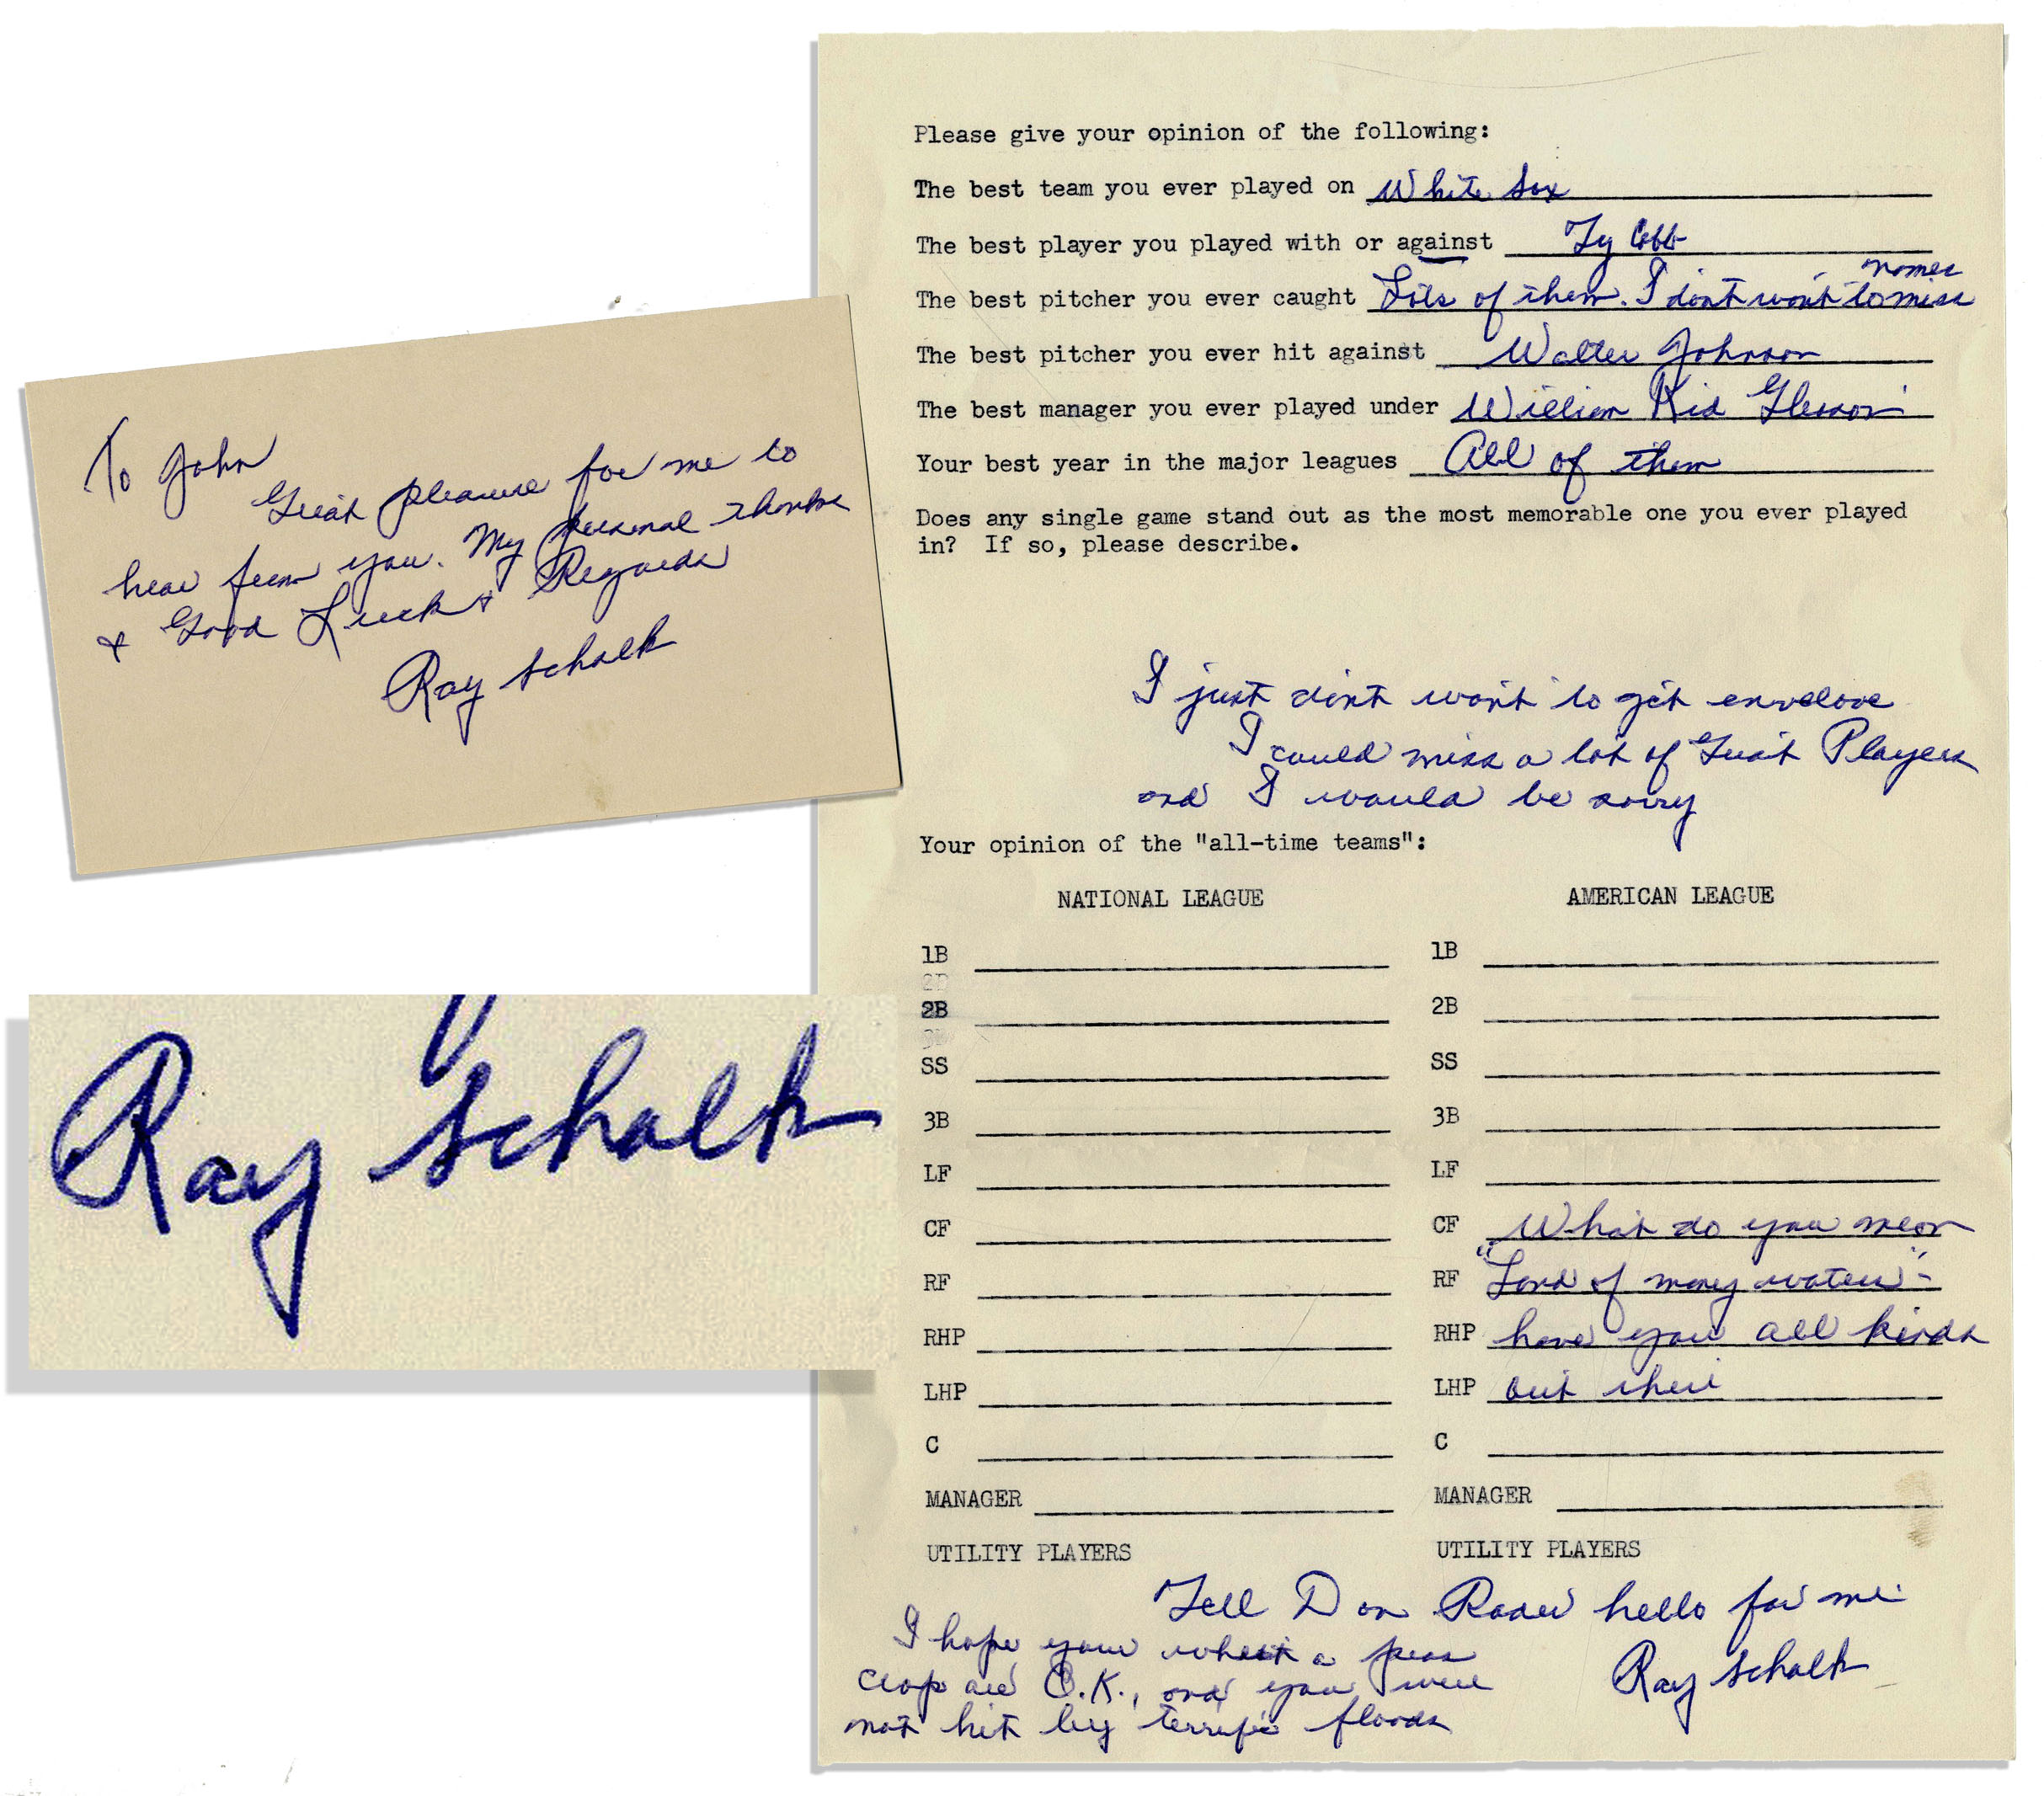 To John
Great pleasure for me to
hear from you. My personal thanks
& Good Luck & Regards
Ray Schalk
Ray Schalk
Please give your opinion of the following:
The best team you ever played on White Sox
The best player you played with or against Ty Cobb
The best pitcher you ever caught Lots of them. I dont want to miss names
The best pitcher you ever hit against Walter Johnson
The best manager you ever played under William Kid Gleason
Your best year in the major leagues All of them
Does any single game stand out as the most memorable one you ever played
in? If so, please describe.
I just dont want to get envelove
I could miss a lot of Great Players
and I would be sorry
Your opinion of the "all-time teams":
NATIONAL LEAGUE AMERICAN LEAGUE
1B 1B
2B 2B
SS SS
3B 3B
LF LF
CF CF What do you mean
RF RF "Land of many waters"-
RHP RHP have you all kinds
LHP LHP out there
C C
MANAGER MANAGER
UTILITY PLAYERS UTILITY PLAYERS
Tell Don Rader hello for me
I hope your wheat & peas
crop are O.K., and you were
not hit by terrific floods
Ray Schalk